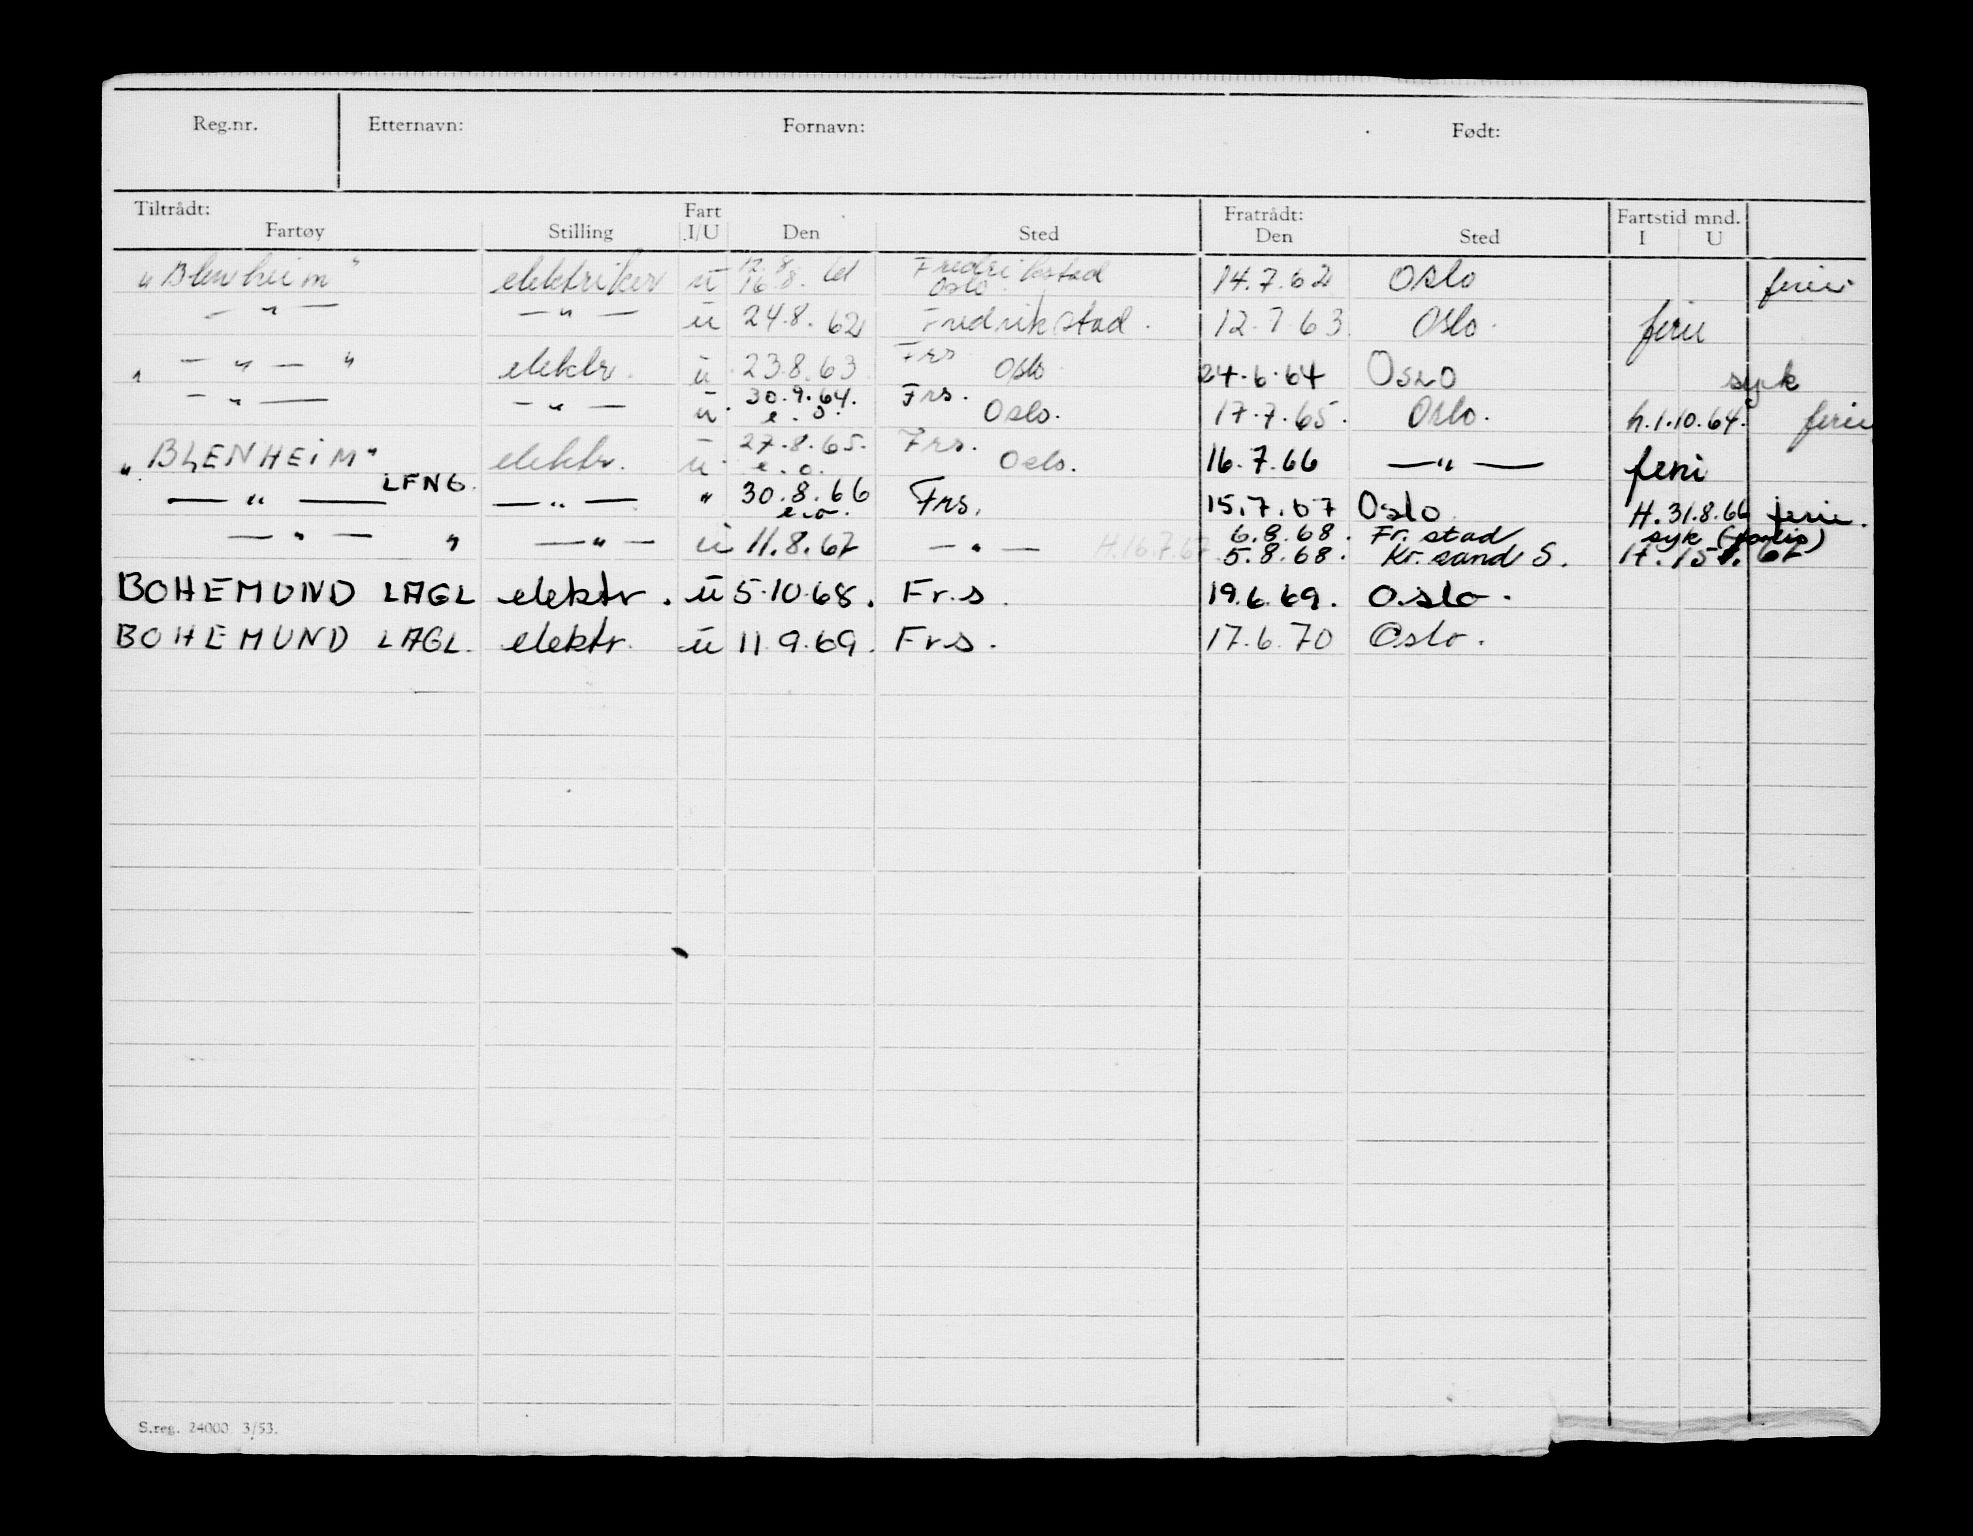 Reg.nr. Etternavn: Fornavn: Født:
Tiltrådt: Fart Fratrådt: Fartstid mnd.
Fartøy Stilling I/U Den Sted Den Sted I U
"Blenheim" elektriker u 16.8. 61 Fredrikstad Oslo 14.7.62 Oslo ferie
— " — — " — u 24.8. 62 Fredrikstad. 12.7.63. Oslo. ferie
" — " — " elektr. u 23.8.63 Frs Oslo 24.6.64 Oslo syk
— " — — " — u. 30.9.64. e.o. Frs. Oslo. 17.7.65. Oslo. h.1.10.64. ferie
"BLENHEIM" elektr. u. 27.8.65. e.o. Frs. Oslo. 16.7.66 — " — feri
— " — LFNG. — " — " 30.8.66 e.o. Frs. 15.7.67 Oslo H.31.8.66 ferie.
— " — " — " — u 11.8.67 — " — H.16.7.67 6.8.68. Fr.stad syk
5.8.68. Kr.sand S.
BOHEMUND LAGL elektr. u 5.10.68. Fr.s. 19.6.69. Oslo.
BOHEMUND LAGL. elektr. u 11.9.69. Frs. 17.6.70 Oslo.
S.reg. 24000 3/53.